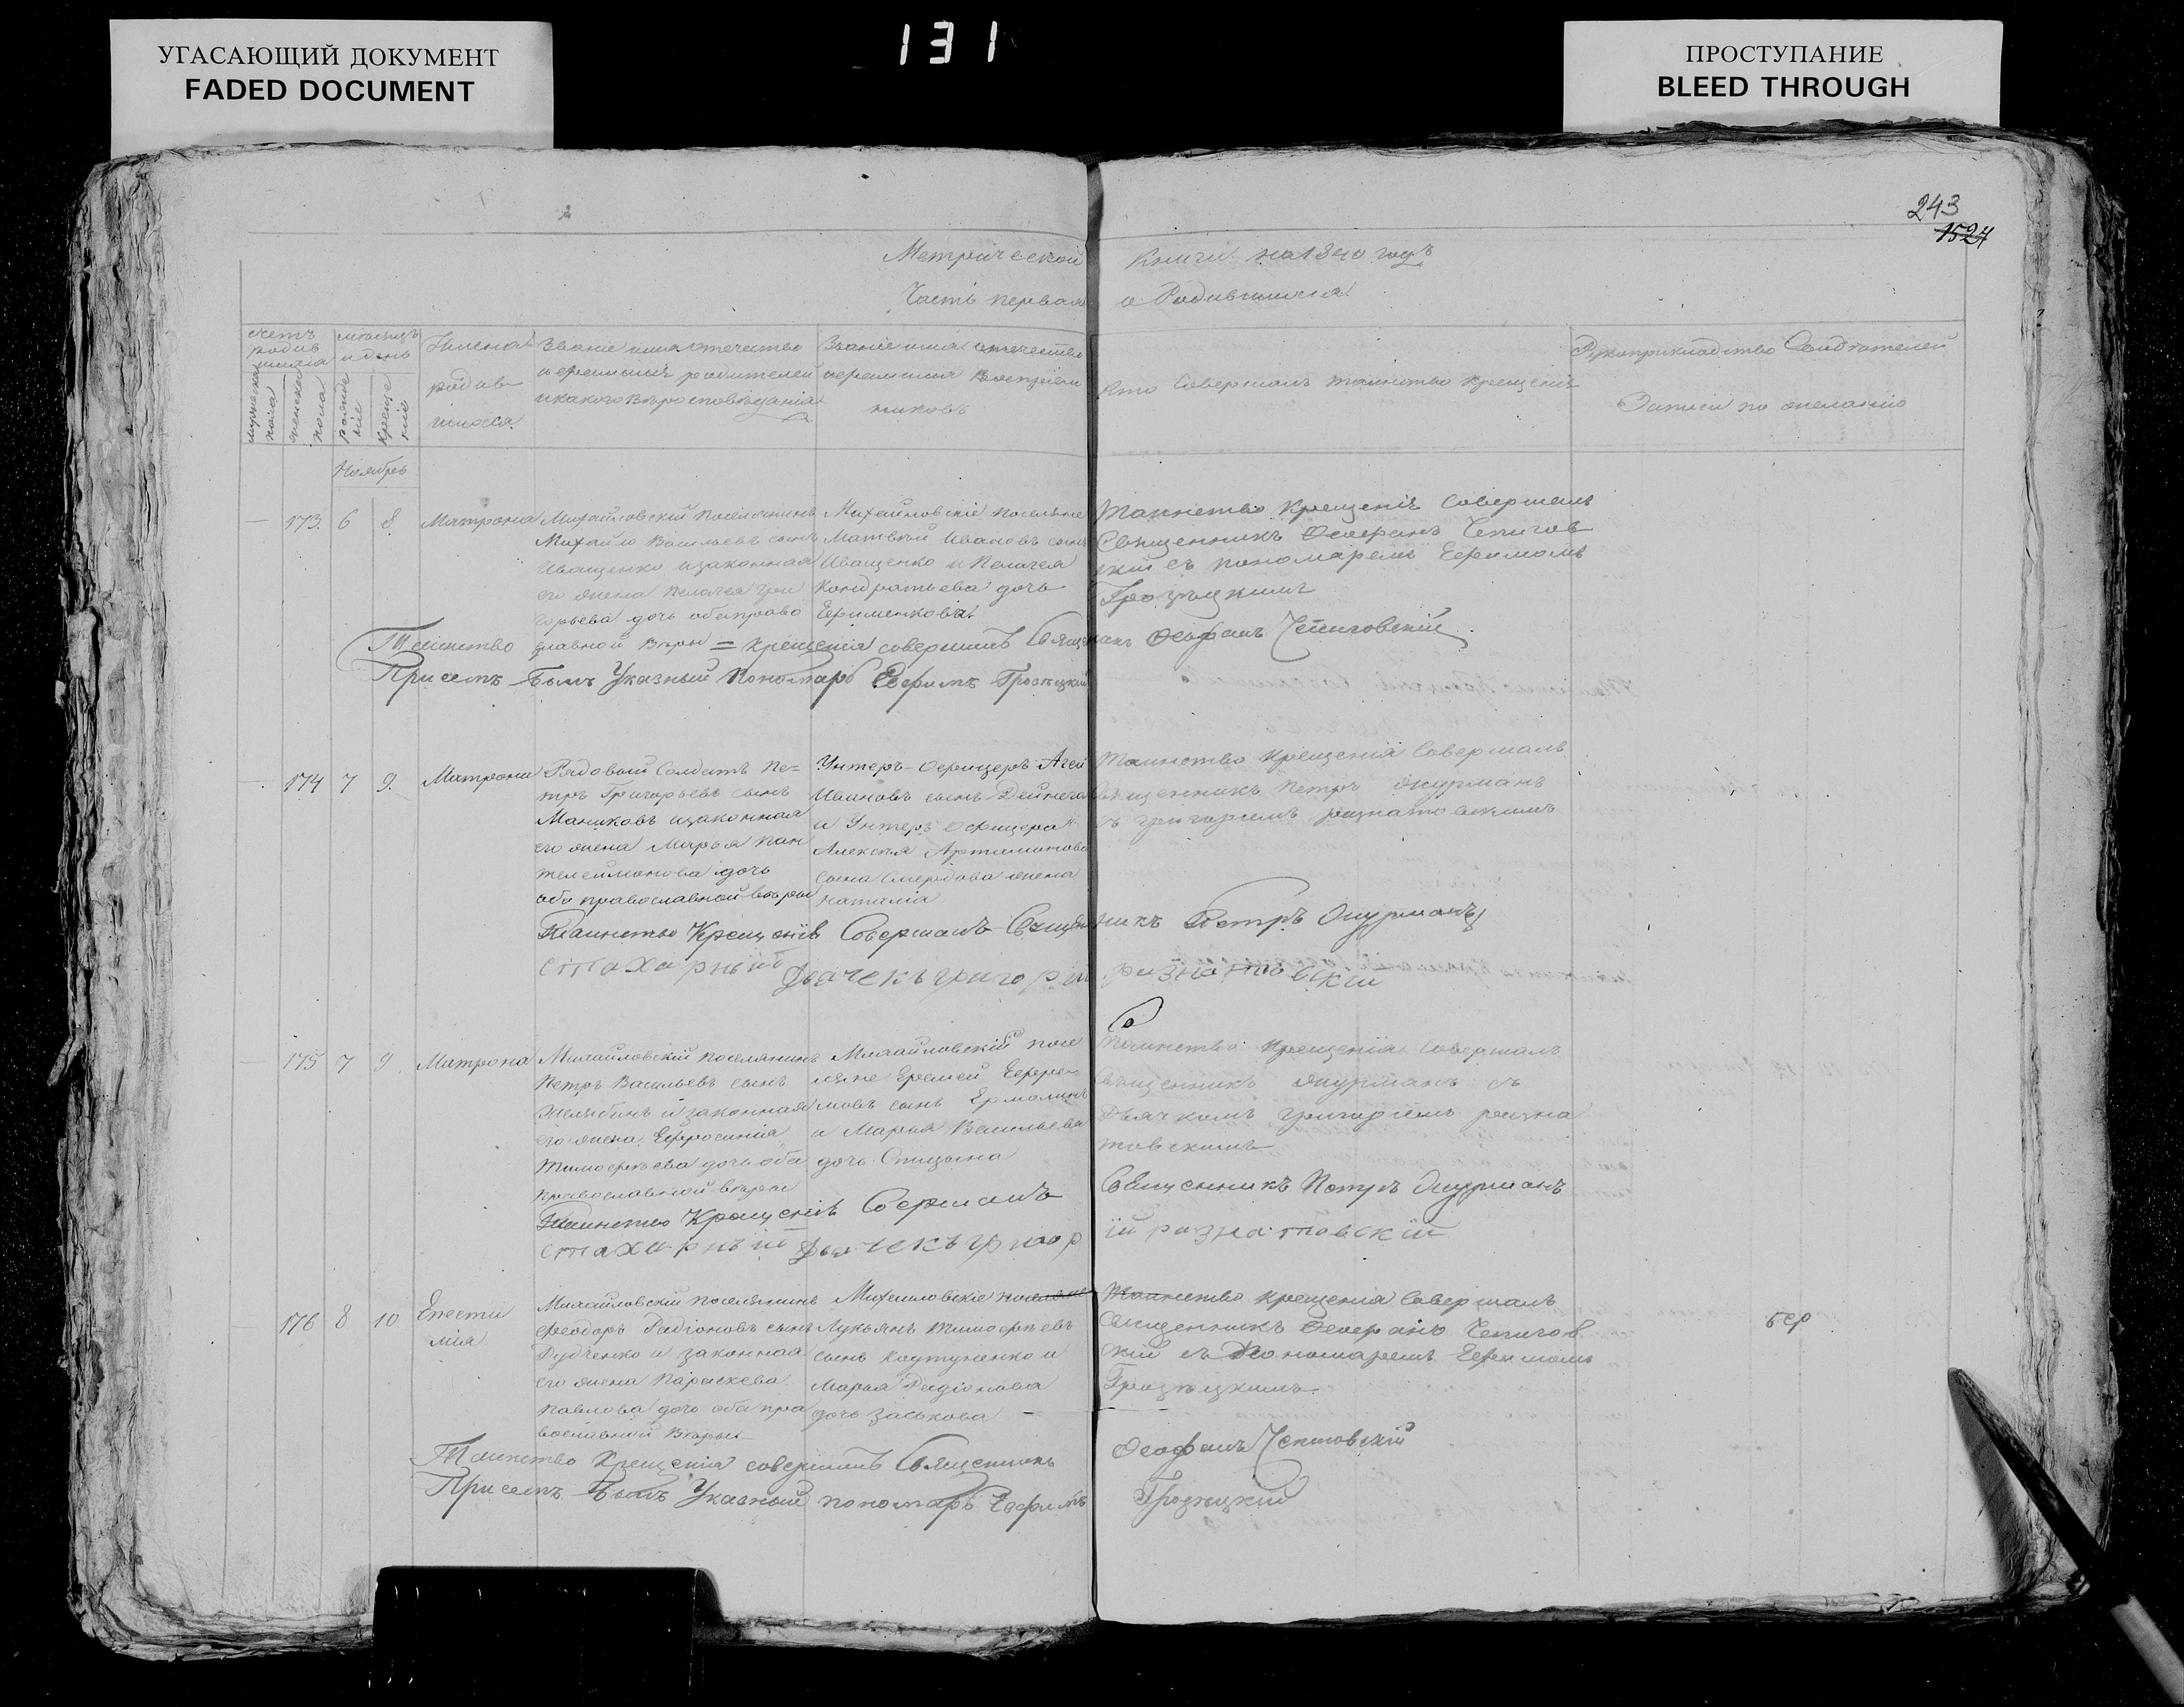 УГАСАЮЩИЙ ДОКУМЕНТ
FADED DOCUMENT
131
ПРОСТУПАНИЕ
BLEED THROUGH
243
1527
Метрической Книги на 1840 годъ
Часть первая о Родившихся
Счетъ родившихся
мужеска пола
женска пола
Мѣсяцъ и день
рожденіе
крещеніе
Имена родившихся
Званіе имя отечество и фамилія родителей и какого вѣроисповѣданія
Званіе имя отечество и фамилія Воспріемниковъ
Кто Совершалъ таинство крещенія
Рукоприкладство Свидѣтелей
Записи по желанію
Ноябрь
173. 6 8. Матрона
Михайловскій поселянинъ
Михайло Васильевъ сынъ
Иващенко и законная
его жена Пелагея Гри
горьева дочь оба право
славной вѣры =
Михайловскіе поселяне
Матвѣй Ивановъ сынъ
Иващенко и Пелагея
Кондратьева дочь
Ефименкова
Таинство крещенія Совершалъ
Священникъ Феофанъ Чепигов
скій съ пономаремъ Ефимомъ
Грозѣцкимъ
Таинство крещенія совершилъ Священникъ Феофанъ Чепиговскій
Присемъ былъ Указный Пономарь Ефимъ Грозѣцкій
174 7 9. Матрона
Рядовый Солдатъ Пе=
тръ Григорьевъ сынъ
Маниковъ и законная
его жена Марья Пан
телеимонова дочь
оба православной вѣры
Унтеръ-Офицеръ Агей
Ивановъ сынъ Дейнега
и Унтеръ Офицера
Алексѣя Артимонова
сына Смердова жена
Наталія
Таинство крещенія Совершалъ
Священникъ Петръ Журманъ
съ Григоріемъ разнатовскимъ
Таинство Крещенія Совершалъ Священникъ Петръ Журманъ
стахарный Дьячекъ григорій разнатовскій
175 7 9. Матрона
Михайловскій поселянинъ
Петръ Васильевъ сынъ
и законная
его жена Ефросинія
Тимофѣева дочь оба
православной вѣры
Михайловскій посе
ляне Еремей Ефре
мовъ сынъ Ермолинъ
и Марья Васильева
дочь Спицына
Таинство Крещенія Совершалъ
Священникъ Журманъ съ
Дьячкомъ Григоріемъ разна
товскимъ
Таинство Крещенія Совершалъ Священникъ Петръ Журманъ
стахарный Дьячекъ григорій разнатовскій
176 8 10 Епести
мія
Михайловскій поселянинъ
Феодоръ Радіоновъ сынъ
Дудченко и законная
его жена Параскева
Павлова дочь оба пра
вославной Вѣры
Михайловскіе поселяне
Лукьянъ Тимофѣевъ
сынъ Ковтуненко и
Марья Радіонова
дочь Заськова
Таинство крещенія Совершалъ
Священникъ Феофанъ Чепигов
скій съ Пономаремъ Ефимомъ
Грозѣцкимъ
Таинство Крещенія совершилъ Священникъ Феофанъ Чепиговскій
Присемъ былъ Указный пономарь Ефимъ Грозѣцкій